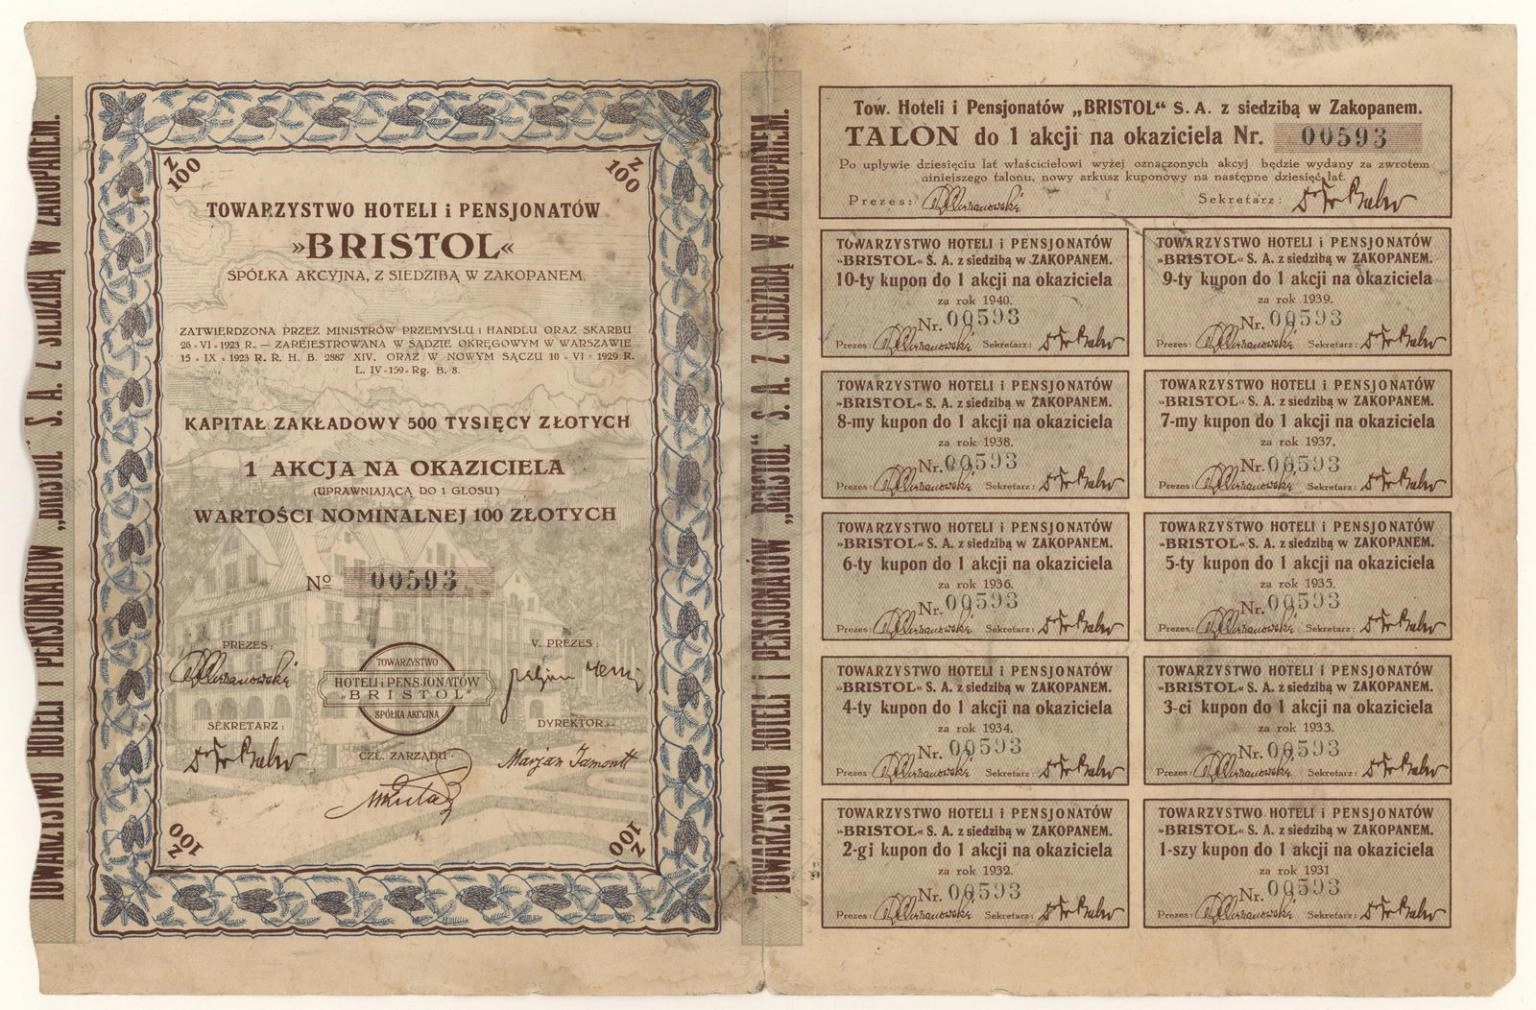 TOWARZYSTWO HOTELI i PENSJONATÓW „BRISTOL“ S. A. Z SIEDZIBĄ W ZAKOPANEM.
Z 100
Z 100
TOWARZYSTWO HOTELI i PENSJONATÓW
»BRISTOL«
SPÓŁKA AKCYJNA, Z SIEDZIBĄ W ZAKOPANEM.
ZATWIERDZONA PRZEZ MINISTRÓW PRZEMYSŁU i HANDLU ORAZ SKARBU
26 - VI - 1923 R. — ZAREJESTROWANA W SĄDZIE OKRĘGOWYM W WARSZAWIE
15 - IX - 1923 R. R. H. B. 2887 XIV. ORAZ W NOWYM SĄCZU 10 - VI - 1929 R.
L. IV - 159 - Rg. B. 8.
KAPITAŁ ZAKŁADOWY 500 TYSIĘCY ZŁOTYCH
1 AKCJA NA OKAZICIELA
(UPRAWNIAJĄCA DO 1 GŁOSU)
WARTOŚCI NOMINALNEJ 100 ZŁOTYCH
Nº 00593
PREZES:
V. PREZES:
TOWARZYSTWO
HOTELI i PENSJONATÓW
"BRISTOL"
SPÓŁKA AKCYJNA
SEKRETARZ:
DYREKTOR:
CZŁ. ZARZĄDU
Marjan
100 Z
100 Z
TOWARZYSTWO HOTELI I PENSJONATÓW „BRISTOL“ S. A. Z SIEDZIBĄ W ZAKOPANEM.
Tow. Hoteli i Pensjonatów „BRISTOL“ S. A. z siedzibą w Zakopanem.
TALON do 1 akcji na okaziciela Nr. 00593
Po upływie dziesięciu lat właścicielowi wyżej oznaczonych akcyj będzie wydany za zwrotem
niniejszego talonu, nowy arkusz kuponowy na następne dziesięć lat.
Prezes: Sekretarz:
TOWARZYSTWO HOTELI i PENSJONATÓW
»BRISTOL« S. A. z siedzibą w ZAKOPANEM.
10-ty kupon do 1 akcji na okaziciela
za rok 1940.
Nr. 00593
Prezes: Sekretarz:
TOWARZYSTWO HOTELI i PENSJONATÓW
»BRISTOL« S. A. z siedzibą w ZAKOPANEM.
9-ty kupon do 1 akcji na okaziciela
za rok 1939.
Nr. 00593
Prezes: Sekretarz:
TOWARZYSTWO HOTELI i PENSJONATÓW
»BRISTOL« S. A. z siedzibą w ZAKOPANEM.
8-my kupon do 1 akcji na okaziciela
za rok 1938.
Nr. 00593
Prezes: Sekretarz:
TOWARZYSTWO HOTELI i PENSJONATÓW
»BRISTOL« S. A. z siedzibą w ZAKOPANEM.
7-my kupon do 1 akcji na okaziciela
za rok 1937.
Nr. 00593
Prezes: Sekretarz:
TOWARZYSTWO HOTELI i PENSJONATÓW
»BRISTOL« S. A. z siedzibą w ZAKOPANEM.
6-ty kupon do 1 akcji na okaziciela
za rok 1936.
Nr. 00593
Prezes: Sekretarz:
TOWARZYSTWO HOTELI i PENSJONATÓW
»BRISTOL« S. A. z siedzibą w ZAKOPANEM.
5-ty kupon do 1 akcji na okaziciela
za rok 1935.
Nr. 00593
Prezes: Sekretarz:
TOWARZYSTWO HOTELI i PENSJONATÓW
»BRISTOL« S. A. z siedzibą w ZAKOPANEM.
4-ty kupon do 1 akcji na okaziciela
za rok 1934.
Nr. 00593
Prezes: Sekretarz:
TOWARZYSTWO HOTELI i PENSJONATÓW
»BRISTOL« S. A. z siedzibą w ZAKOPANEM.
3-ci kupon do 1 akcji na okaziciela
za rok 1933.
Nr. 00593
Prezes: Sekretarz:
TOWARZYSTWO HOTELI i PENSJONATÓW
»BRISTOL« S. A. z siedzibą w ZAKOPANEM.
2-gi kupon do 1 akcji na okaziciela
za rok 1932.
Nr. 00593
Prezes: Sekretarz:
TOWARZYSTWO HOTELI i PENSJONATÓW
»BRISTOL« S. A. z siedzibą w ZAKOPANEM.
1-szy kupon do 1 akcji na okaziciela
za rok 1931
Nr. 00593
Prezes: Sekretarz: